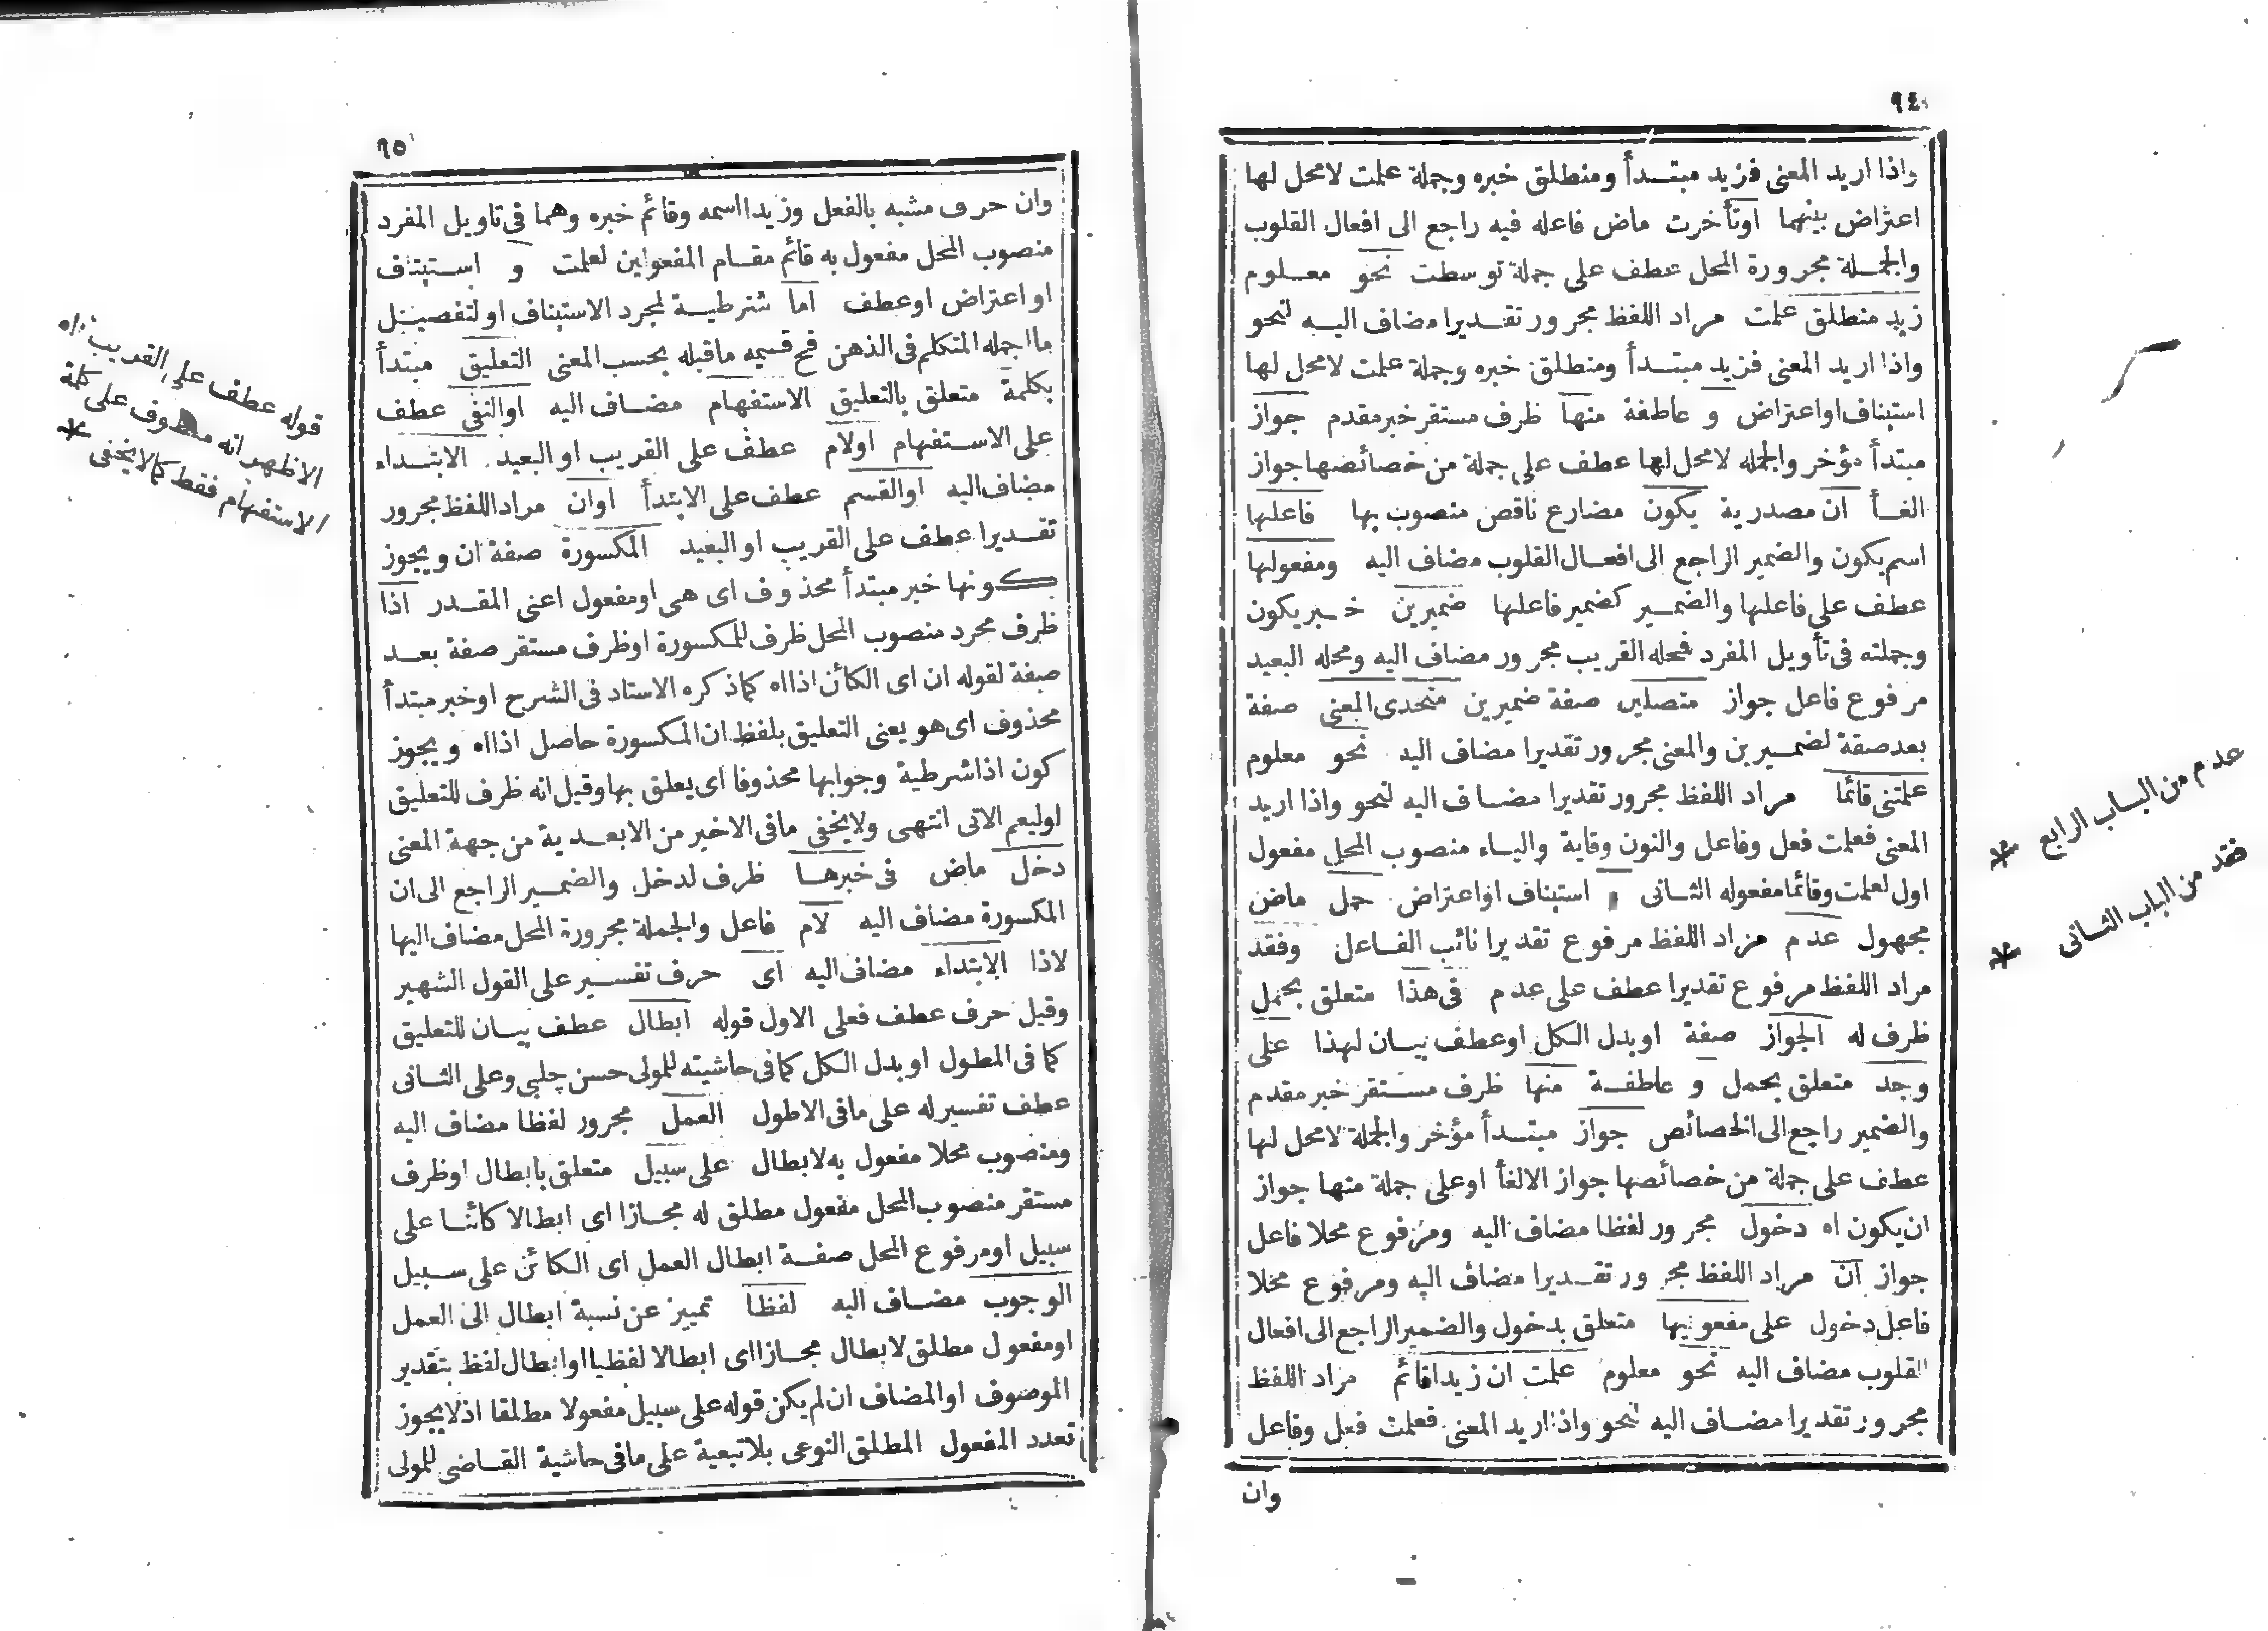 ٩٤
واذا اريد المعنى فزيد مبتدأ ومنطلق خبره وجملة علمت لامحل لها
اعتراض بينهما اوتأخرت ماض فاعله فيه راجع الى افعال القلوب
والجملة مجرورة المحل عطف على جملة توسطت نحو معلوم
زيد منطلق علمت مراد اللفظ مجرور تقديرا مضاف اليه لنحو
واذا اريد المعنى فزيد مبتدأ ومنطلق خبره وجملة علمت لامحل لها
استيناف اواعتراض و عاطفة منها ظرف مستقر خبر مقدم جواز
مبتدأ مؤخر والجمله لامحل لها عطف على جملة من خصائصها جواز
الغأ ان مصدرية يكون مضارع ناقص منصوب بها فاعلها
اسم يكون والضمير الراجع الى افعال القلوب مضاف اليه ومفعولها
عطف على فاعلها والضمير كضمير فاعلها ضميرين خبر يكون
وجملته فى تأويل المفرد فمحله القريب مجرور مضاف اليه ومحله البعيد
مرفوع فاعل جواز متصلين صفة ضميرين متحدى المعنى صفة
بعد صفة لضميرين والمعنى مجرور تقديرا مضاف اليه نحو معلوم
علمتنى قائما مراد اللفظ مجرور تقديرا مضاف اليه لنحو واذا اريد
المعنى فعلمت فعل وفاعل والنون وقاية والياء منصوب المحل مفعول
اول لعلمت وقائما مفعوله الثانى و استيناف اواعتراض حمل ماض
مجهول عدم مراد اللفظ مرفوع تقديرا نائب الفاعل وفقد
مراد اللفظ مرفوع تقديرا عطف على عدم فى هذا متعلق بحمل
ظرف له الجواز صفة اوبدل الكل اوعطف بيان لهذا على
وجد متعلق بحمل و عاطفة منها ظرف مستقر خبر مقدم
والضمير راجع الى الخصائص جواز مبتدأ مؤخر والجملة لامحل لها
عطف على جملة من خصائصها جواز الالغأ اوعلى جملة منها جواز
ان يكون اه دخول مجرور لفظا مضاف اليه ومرفوع محلا فاعل
جواز ان مراد اللفظ مجرور تقديرا مضاف اليه ومرفوع محلا
فاعل دخول على مفعوليها متعلق بدخول والضمير الراجع الى افعال
القلوب مضاف اليه نحو معلوم علمت ان زيدا قائم مراد اللفظ
مجرور تقديرا مضاف اليه لنحو واذا اريد المعنى فعلمت فعل وفاعل
وان
عدم من الباب الرابع *
فقد من الباب الثانى *
٩٥
وان حرف مشبه بالفعل وزيدا اسمه وقائم خبره وهما فى تاويل المفرد
منصوب المحل مفعول به قائم مقام المفعولين لعلمت و استيناف
او اعتراض اوعطف اما شرطية لمجرد الاستيناف او لتفصيل
ما اجمله المتكلم فى الذهن فح قسيمه ماقبله بحسب المعنى التعليق مبتدأ
بكلمة متعلق بالتعليق الاستفهام مضاف اليه اوالنفى عطف
على الاستفهام اولام عطف على القريب او البعيد الابتداء
مضاف اليه اوالقسم عطف على الابتدأ اوان مراد اللفظ مجرور
تقديرا عطف على القريب او البعيد المكسورة صفة ان ويجوز
كونها خبر مبتدأ محذوف اى هى اومفعول اعنى المقدر اذا
ظرف مجرد منصوب المحل ظرف للمكسورة اوظرف مستقر صفة بعد
صفة لقوله ان اى الكائن اذا اه كما ذكره الاستاد فى الشرح اوخبر مبتدأ
محذوف اى هو يعنى التعليق بلفظ ان المكسورة حاصل اذا اه ويجوز
كون اذا شرطية وجوابها محذوفا اى يعلق بها وقيل انه ظرف للتعليق
اوليعم الاتى انتهى ولايخفى مافى الاخير من الابعدية من جهة المعنى
دخل ماض فى خبرها ظرف لدخل والضمير الراجع الى ان
المكسورة مضاف اليه لام فاعل والجملة مجرورة المحل مضاف اليها
لاذا الابتداء مضاف اليه اى حرف تفسير على القول الشهير
وقيل حرف عطف فعلى الاول قوله ابطال عطف بيان للتعليق
كما فى المطول او بدل الكل كما فى حاشيته للمولى حسن چلبي وعلى الثانى
عطف تفسير له على مافى الاطول العمل مجرور لفظا مضاف اليه
ومنصوب محلا مفعول به لابطال على سبيل متعلق بابطال اوظرف
مستقر منصوب المحل مفعول مطلق له مجازا اى ابطالا كائنا على
سبيل اومرفوع المحل صفة ابطال العمل اى الكائن على سبيل
الوجوب مضاف اليه لفظا تمييز عن نسبة ابطال الى العمل
اومفعول مطلق لابطال مجازا اى ابطالا لفظيا اوابطال لفظ بتقدير
الموصوف اوالمضاف ان لم يكن قوله على سبيل مفعولا مطلقا اذ لايجوز
تعدد المفعول المطلق النوعى بلاتبعية على مافى حاشية القاضى للمولى
قوله عطف على القريب
الاظهر انه معطوف على كلمة
الاستفهام فقط كما لايخفى *